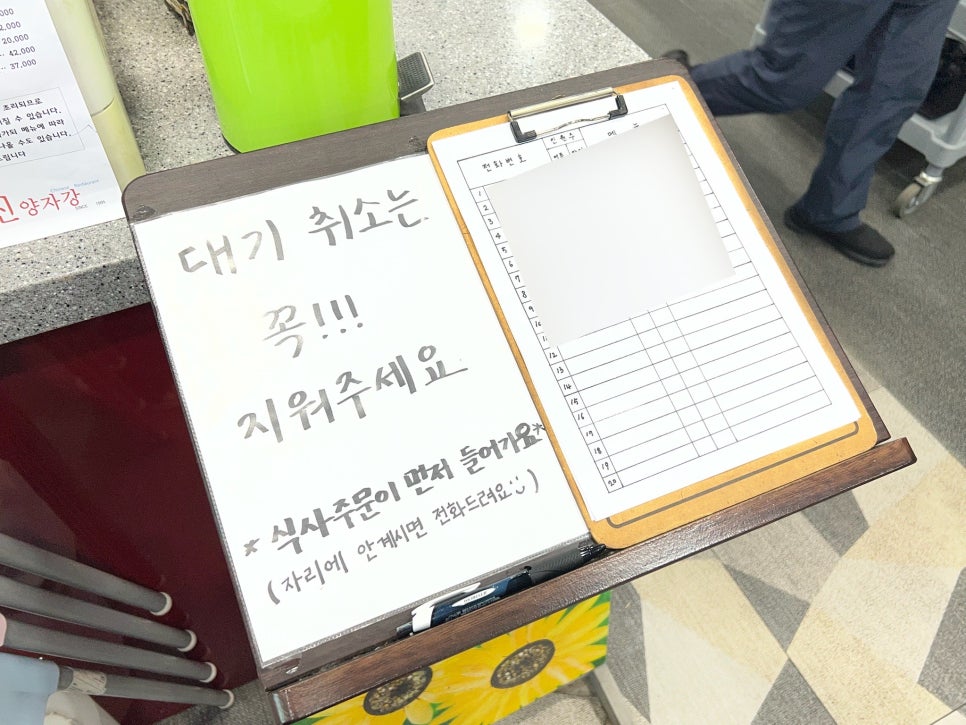 000
2,000
20,000
42,000
37,000
조리되므로
질 수 있습니다.
가되 메뉴에 따라
나올 수도 있습니다.
드립니다
Chinese Restaurant
신양자강
SINCE 1991
대기 취소는
꼭!!!
지워주세요
* 식사주문이 먼저 들어가요*
(자리에 안계시면 전화드려요:))
전화번호
인원수
메뉴
1
2
3
4
5
6
7
8
9
10
11
12
13
14
15
16
17
18
19
20